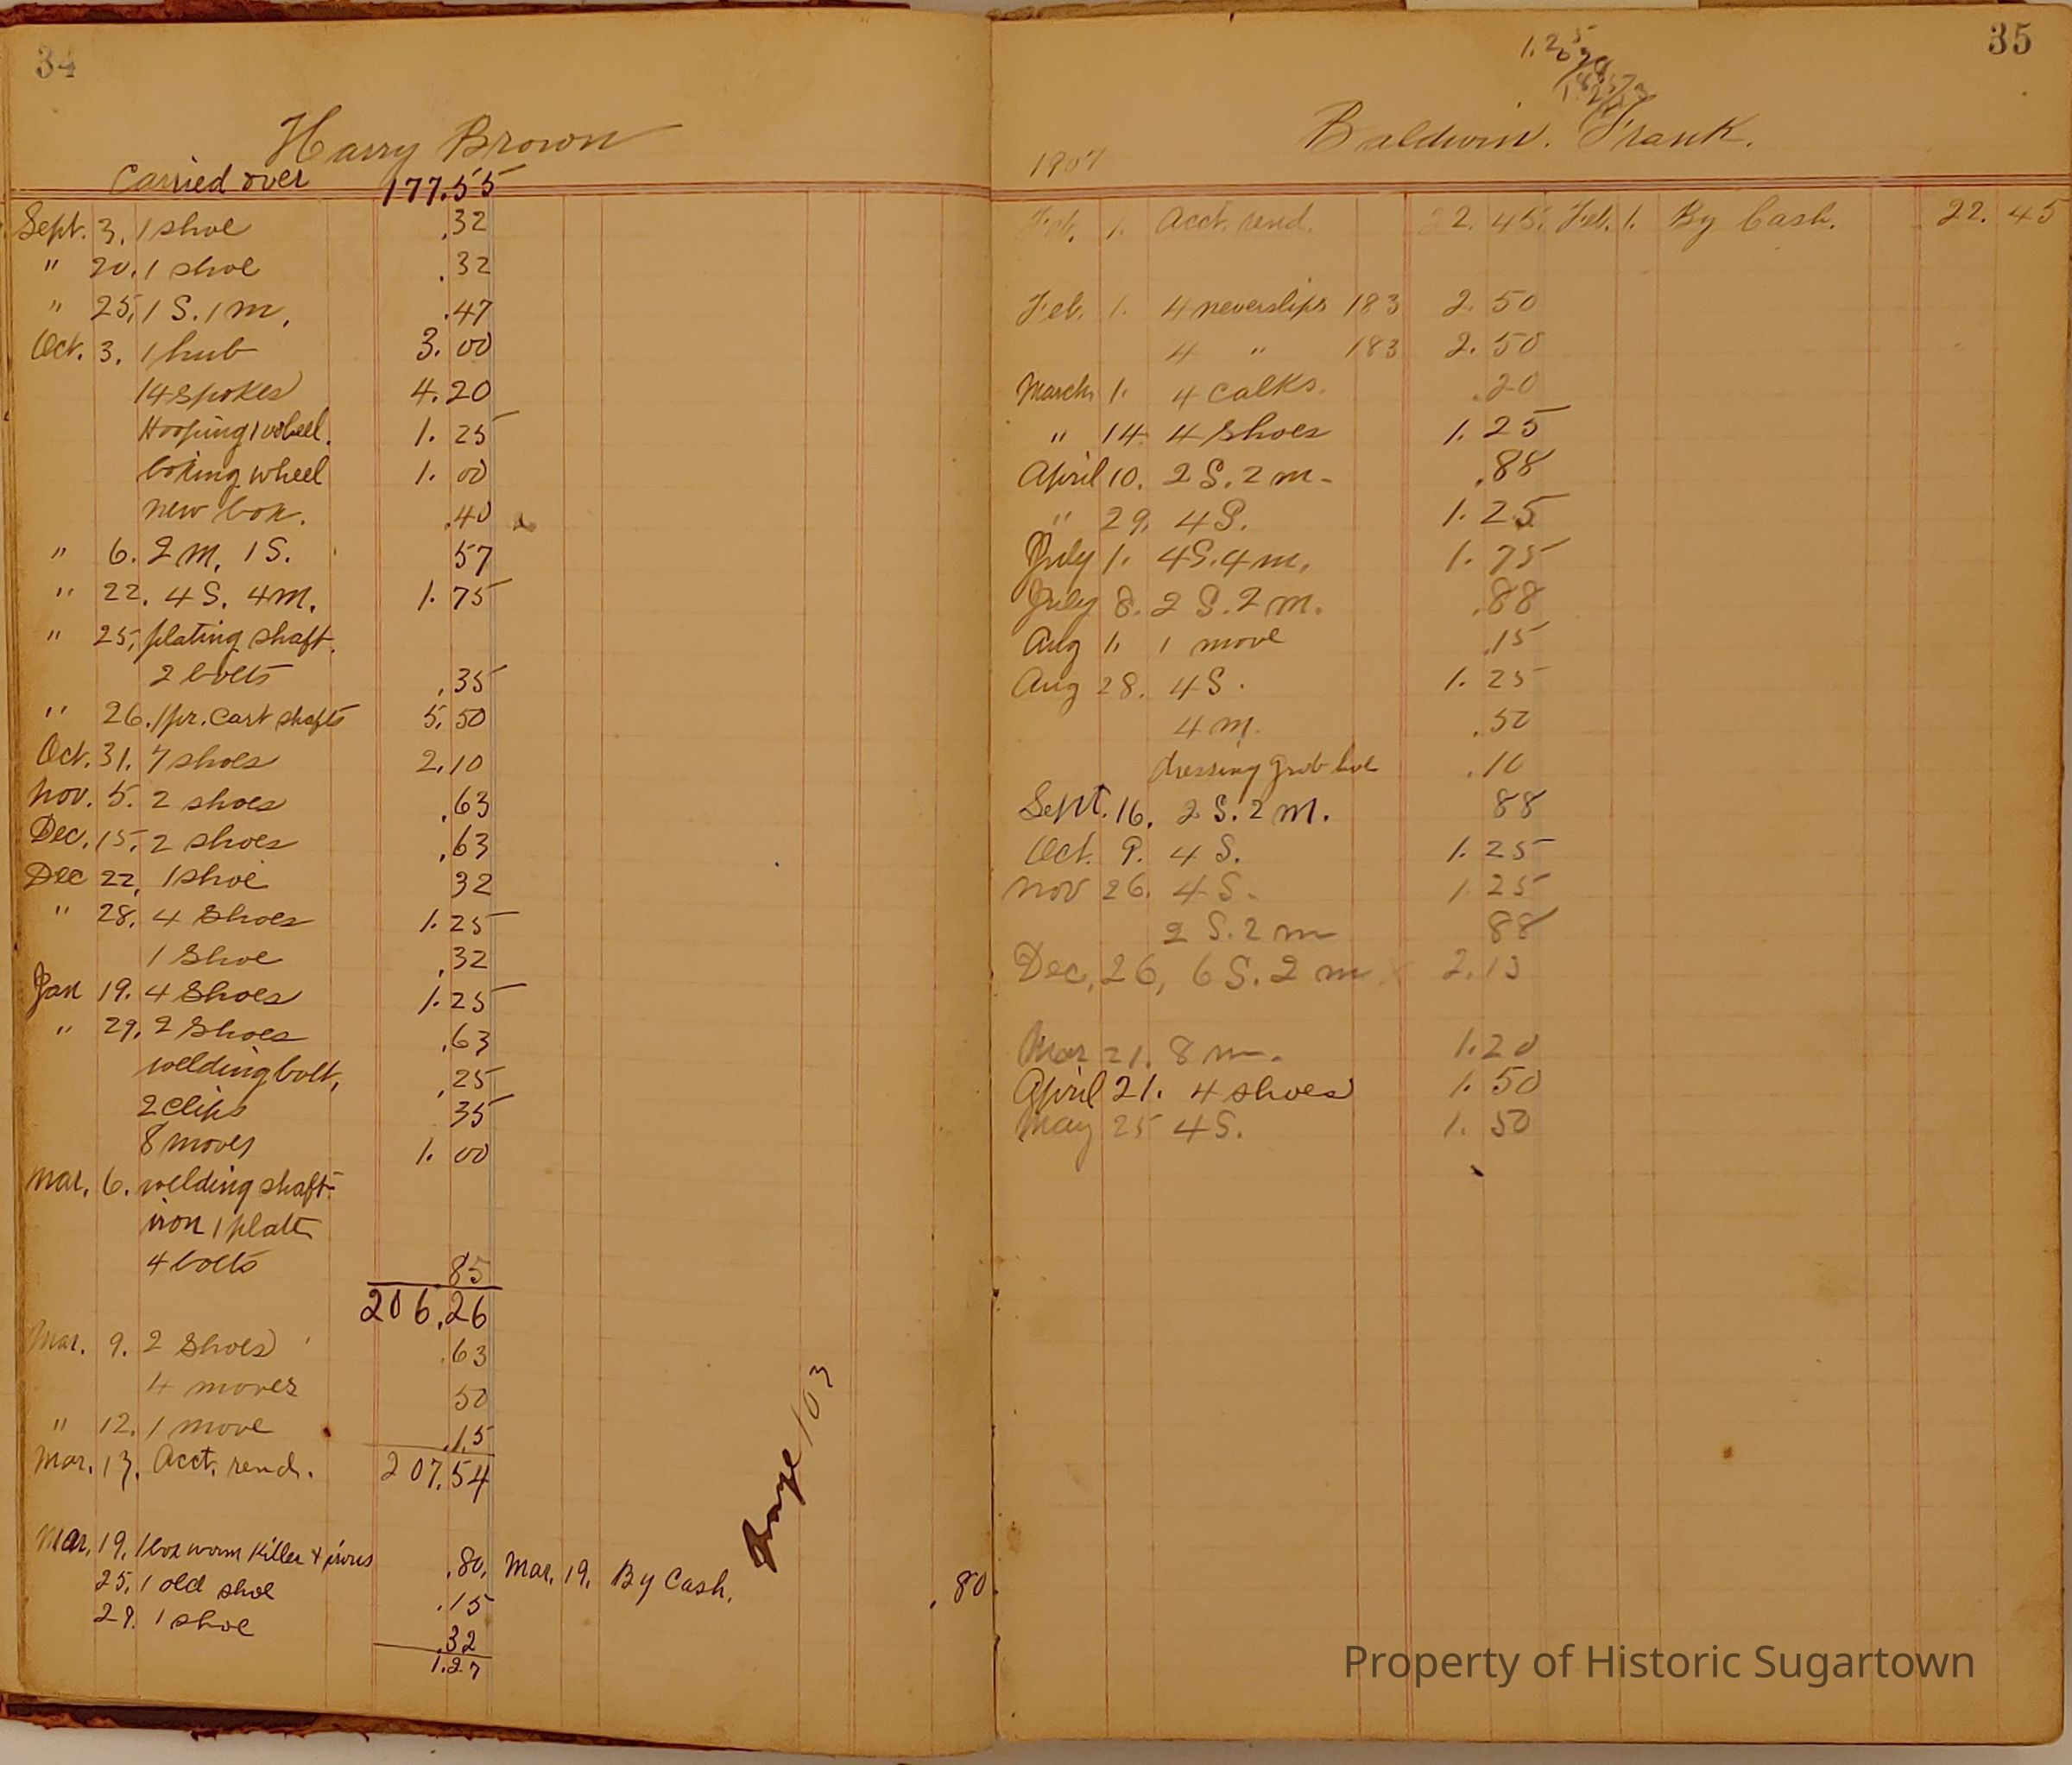 34
Harry Brown
Carried over 177.55
Sept. 3. 1 shoe .32
" 20. 1 shoe .32
" 25. 1 S. 1 m. .47
Oct. 3. 1 hub 3.00
14 spokes 4.20
Hooping 1 wheel. 1.25
boxing wheel 1.00
new box. .40
" 6. 2 m. 1 S. 57
" 22. 4 S. 4 m. 1.75
" 25. plating shaft.
2 bolts .35
" 26. 1 pr. Cart shafts 5.50
Oct. 31. 7 shoes 2.10
Nov. 5. 2 shoes .63
Dec. 15. 2 shoes .63
Dec 22. 1 shoe 32
" 28. 4 Shoes 1.25
1 Shoe .32
Jan 19. 4 Shoes 1.25
" 29. 2 Shoes .63
welding bolt, .25
2 clips 35
8 moves 1.00
Mar. 6. welding shaft
iron 1 plate
4 bolts .85
206.26
Mar. 9. 2 Shoes .63
4 moves 50
" 12. 1 move .15
Mar. 13. Acct. rend. 207.54
Mar. 19. 1 box worm killer & .80. Mar. 19. By Cash. .80
25. 1 old shoe .15
29. 1 shoe .32
1.27
103
35
1.25
Baldwin. Frank.
1907
Feb. 1. Acct. rend. 22.45. Feb. 1. By Cash. 22.45
Feb. 1. 4 neverslips 183 2.50
4 " 183 2.50
March 1. 4 calks. .20
" 14. 4 Shoes 1.25
April 10. 2 S. 2 m. .88
" 29. 4 S. 1.25
July 1. 4 S. 4 m. 1.75
July 8. 2 S. 2 m. .88
Aug 1. 1 move .15
Aug 28. 4 S. 1.25
4 m. .50
dressing grub hoe .10
Sept. 16. 2 S. 2 m. 88
Oct. 9. 4 S. 1.25
Nov 26. 4 S. 1.25
2 S. 2 m 88
Dec. 26, 6 S. 2 m 2.13
Mar 21. 8 m. 1.20
April 21. 4 shoes 1.50
May 25 4 S. 1.50
Property of Historic Sugartown